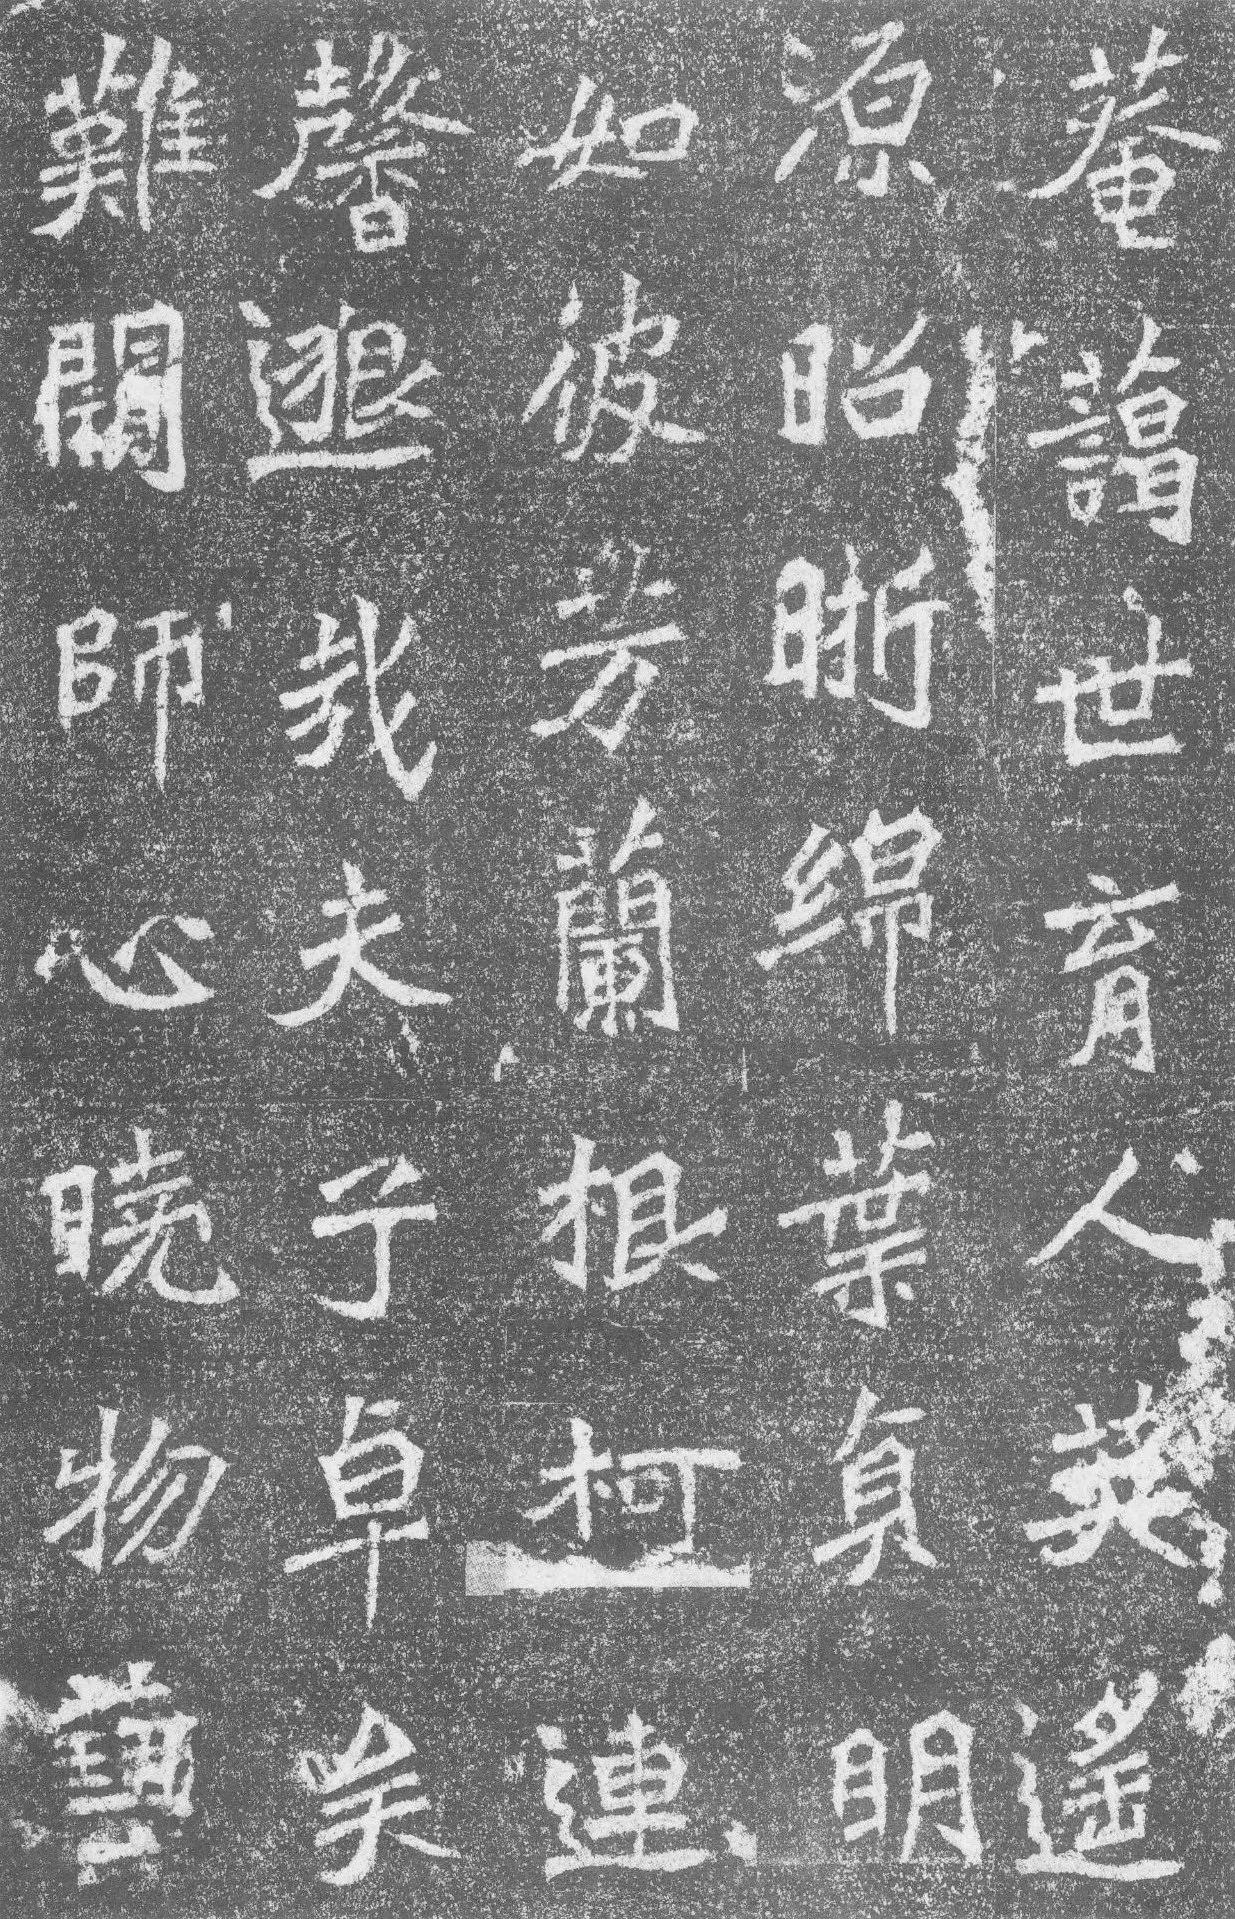 菴藹世育人英遥
源昭晰綿葉貞明
如彼芳蘭根柯連
馨邈哉夫子卓矣
難闚師心曉物